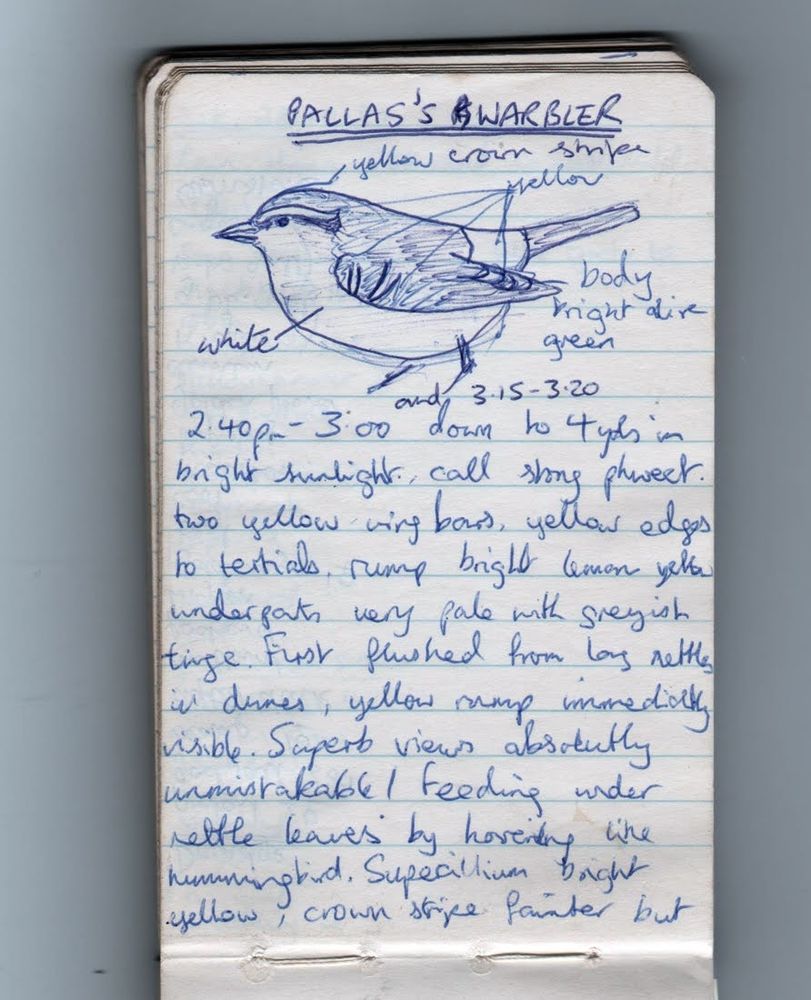 PALLAS'S WARBLER
yellow crown stripe
yellow
body
bright olive
green
white
and 3.15-3.20
2.40pm - 3.00 down to 4yds in
bright sunlight. call strong phweet.
two yellow wing bars, yellow edges
to tertials, rump bright lemon yellow
underparts very pale with greyish
tinge. First flushed from long nettles
in dunes, yellow rump immediately
visible. Superb views absolutely
unmistakable! Feeding under
nettle leaves by hovering like
hummingbird. Supecillium bright
yellow, crown stripe fainter but